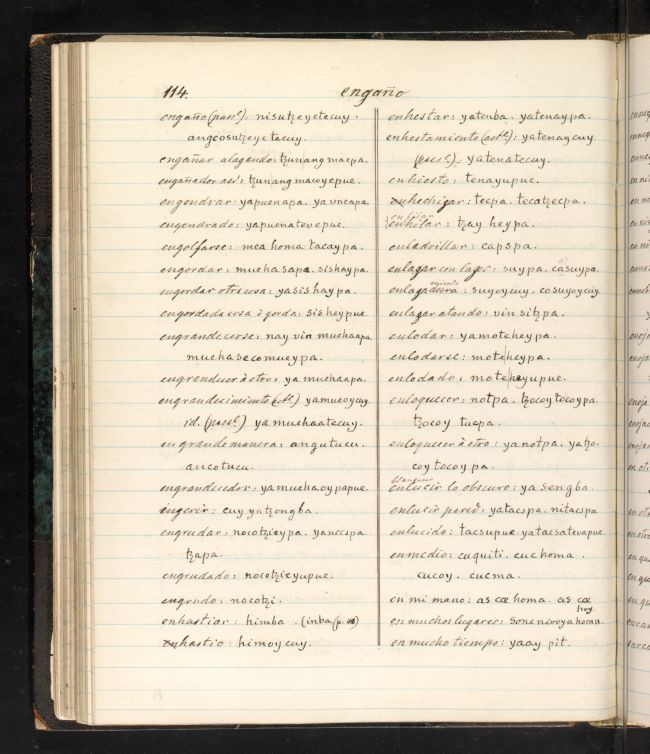 114.
engaño
engaño (pass.): nisutzeyetecuy.
angcosutzeyetecuy.
engañar alagando: tzunangmacpa.
engañador asi: tzunangmacoyepue.
engendrar: yapuenapa. yavneapa.
engendrado: yapuenatevepue.
engolfarse: mea homa tacaypa.
engordar: muchasapa. sishaypa.
engordar otra cosa: yasishaypa.
engordada cosa ò gorda: sisheypue.
engrandecerse: nay vin muchaapa.
muchasecomueypa.
engrandecer à otro: ya muchaapa.
engrandecimiento (act.) yamucoycuy.
id. (pass.) yamuchaatecuy.
en grande manera: angutucu.
ancotucu.
engrandecedor: yamuchaoypapue.
engerir: cuy yatzongba.
engrudar: nocotzieypa. yanecspa
tzapa.
engrudado: nocotzieyupue.
engrudo. nocotzi.
enhastiar: himba. (inba (p.
enhastio: himoycuy.
enhestar: yatenba. yatenaypa.
enhestamiento (act.): yatenaycuy
(pass.): yatenatecuy.
enhiesto: tenayupue.
enhechizar: tecpa. tecatzecpa.
enhilar: tzay heypa.
enladrillar: capspa.
enlazar con lazos: suypa. casuypa.
enlazadeira: suyoycuy. cosuyoycuy
enlazar atando: vin sitzpa.
enlodar: yamoteheypa.
enlodarse: mote heypa.
enlodado: moteheyupue.
enloquecer: notpa. tzocoytocoypa
tzocoy tucpa.
enloquecer à otro: yanotpa. yatzo-
coytocoypa.
blanquear
enlucir lo obscuro: yasengba.
enlucir pared: yatacspa. nitacspa
enlucido: tacsupue. yatacsatevapue.
enmedio: cuquiti. cuchoma.
cucoy. cucma.
en mi mano: as cæ homa. as cæ
hoy.
en muchos lugares: sonenicoyahoma.
en mucho tiempo: yaay pit.